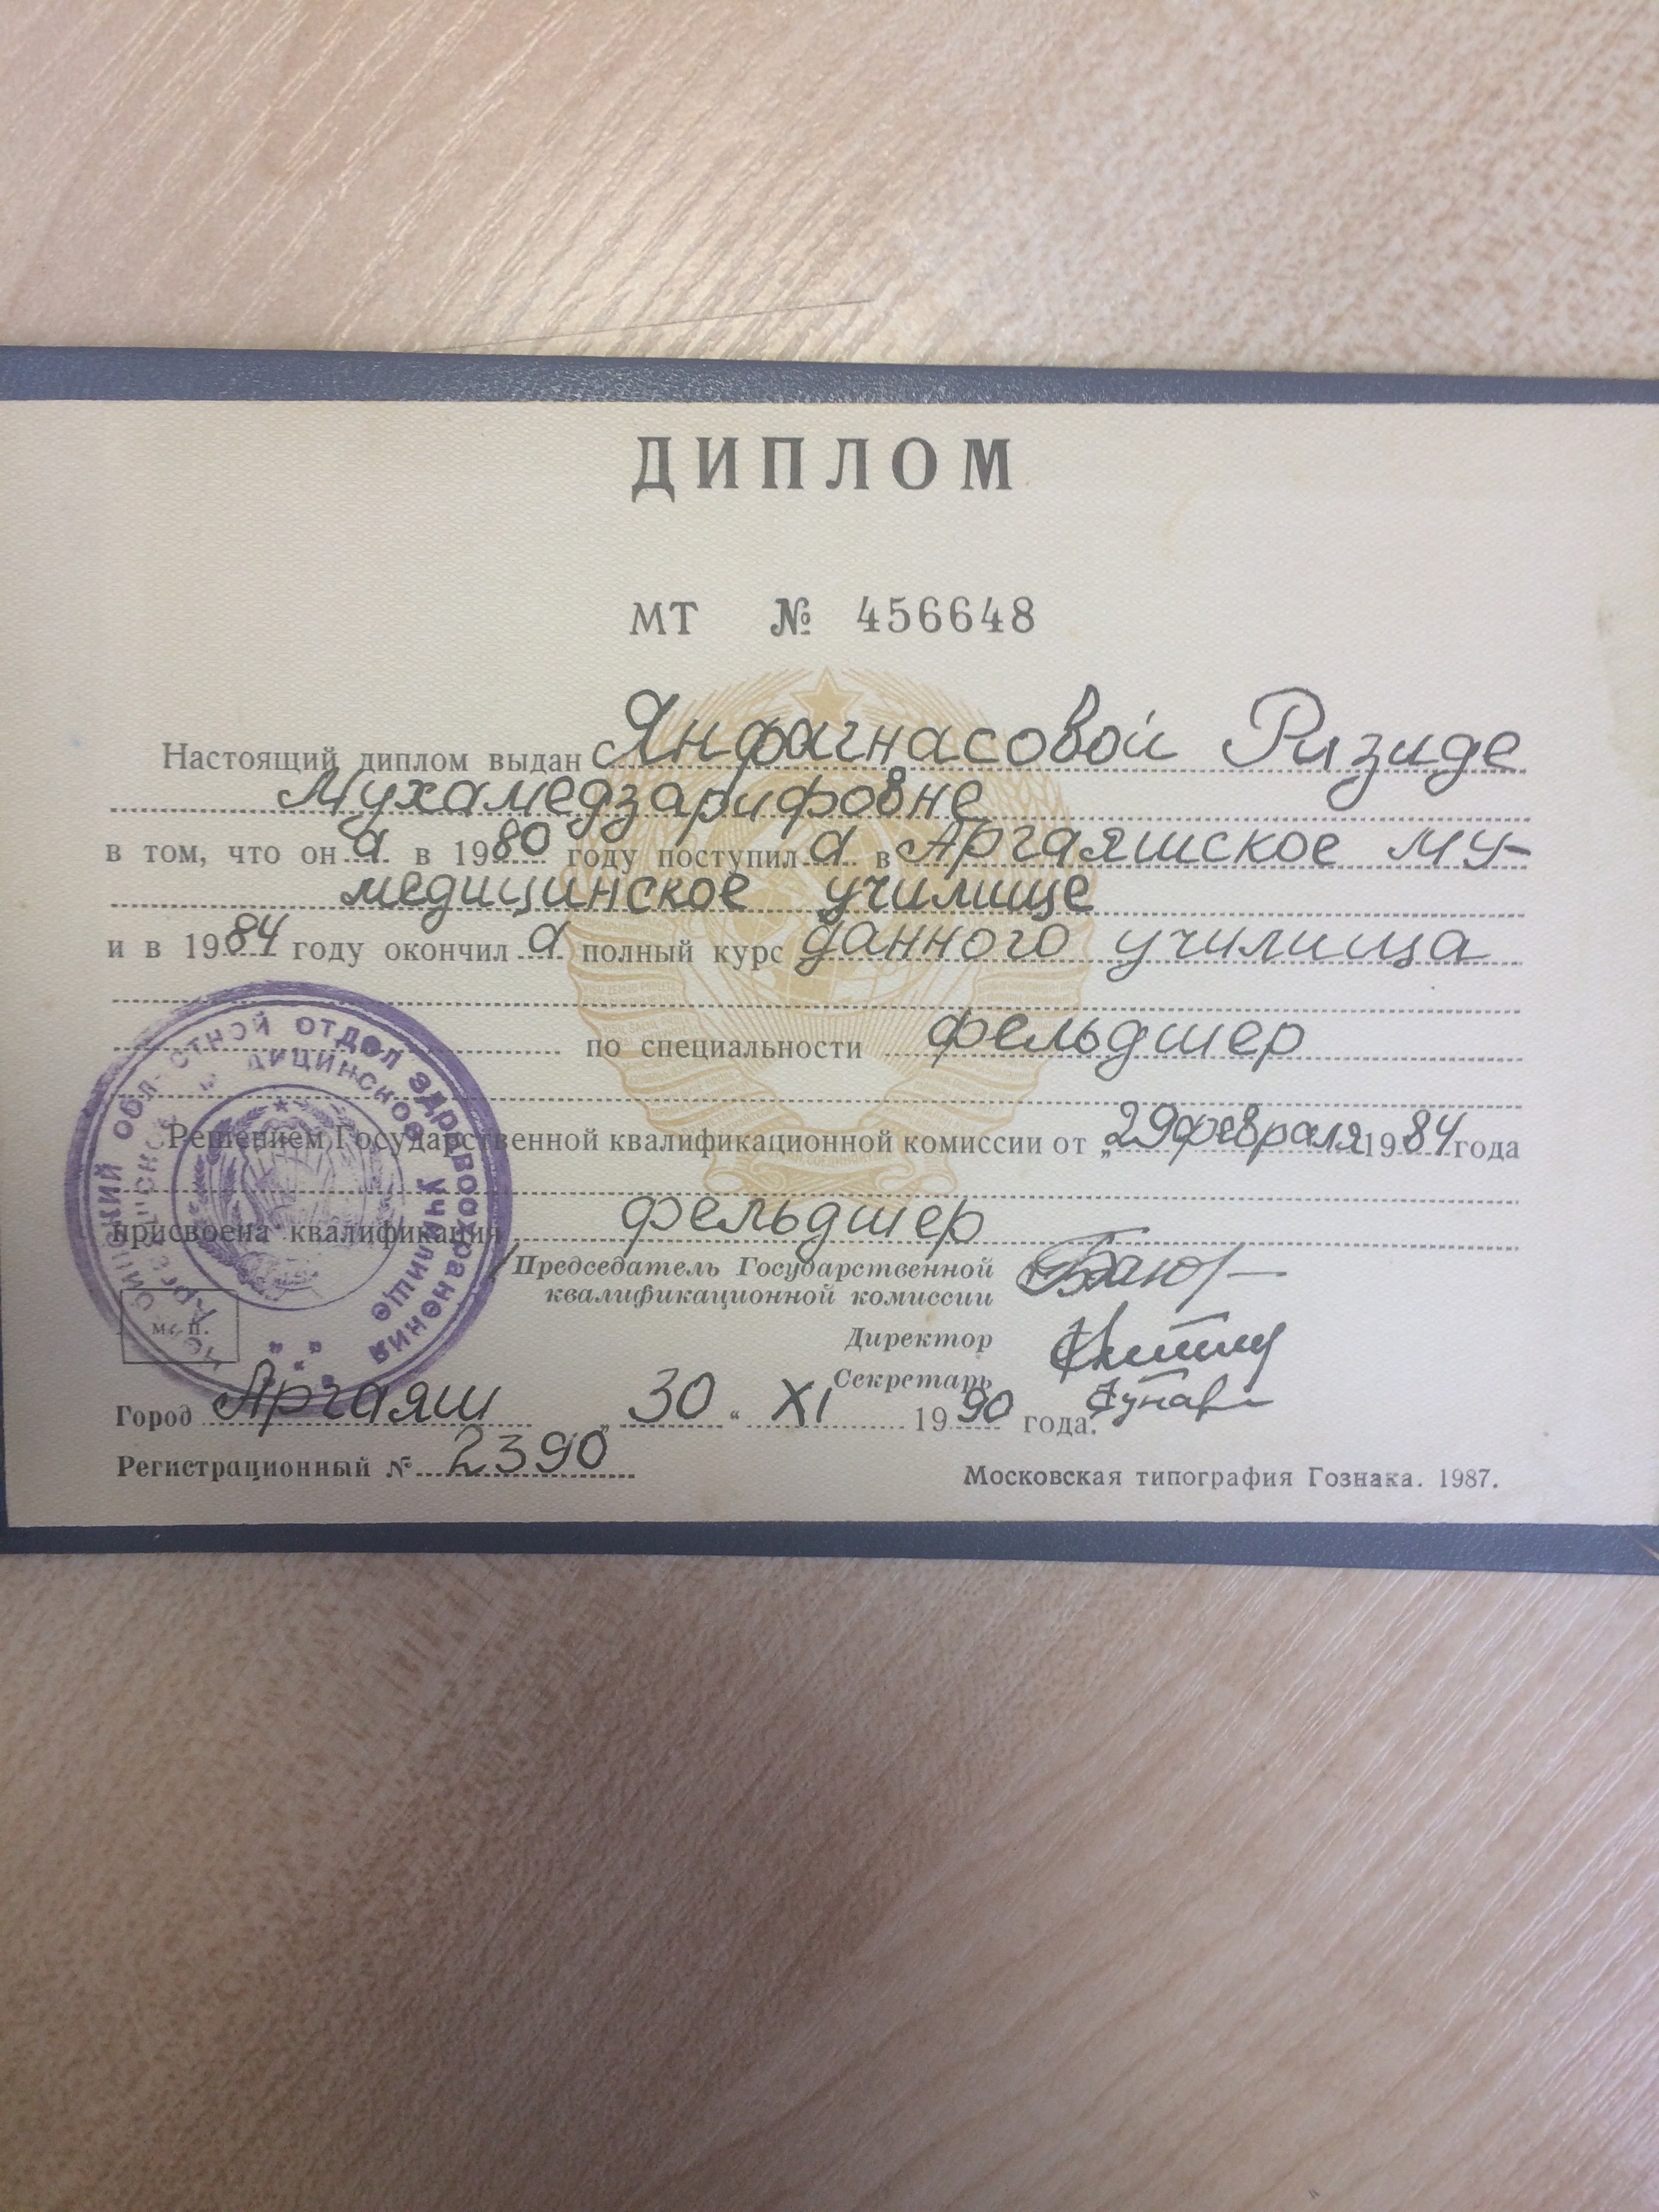 ДИПЛОМ
МТ № 456648
Настоящий диплом выдан Янфагнасовой Ризиде
Мухамедзарифовне
в том, что он а в 1980 году поступил а в Аргаяшское му-
медицинское училище
и в 1984 году окончил а полный курс данного училища
по специальности фельдшер
Решением Государственной квалификационной комиссии от „29 февраля 1984 года
присвоена квалификация фельдшер
Председатель Государственной
квалификационной комиссии
Директор
Секретарь
м. п.
Город Аргаяш „30“ XI 1990 года.
Регистрационный № 2390
Московская типография Гознака. 1987.
ОТДЕЛ ЗДРАВООХРАНЕНИЯ
УЧИЛИЩЕ